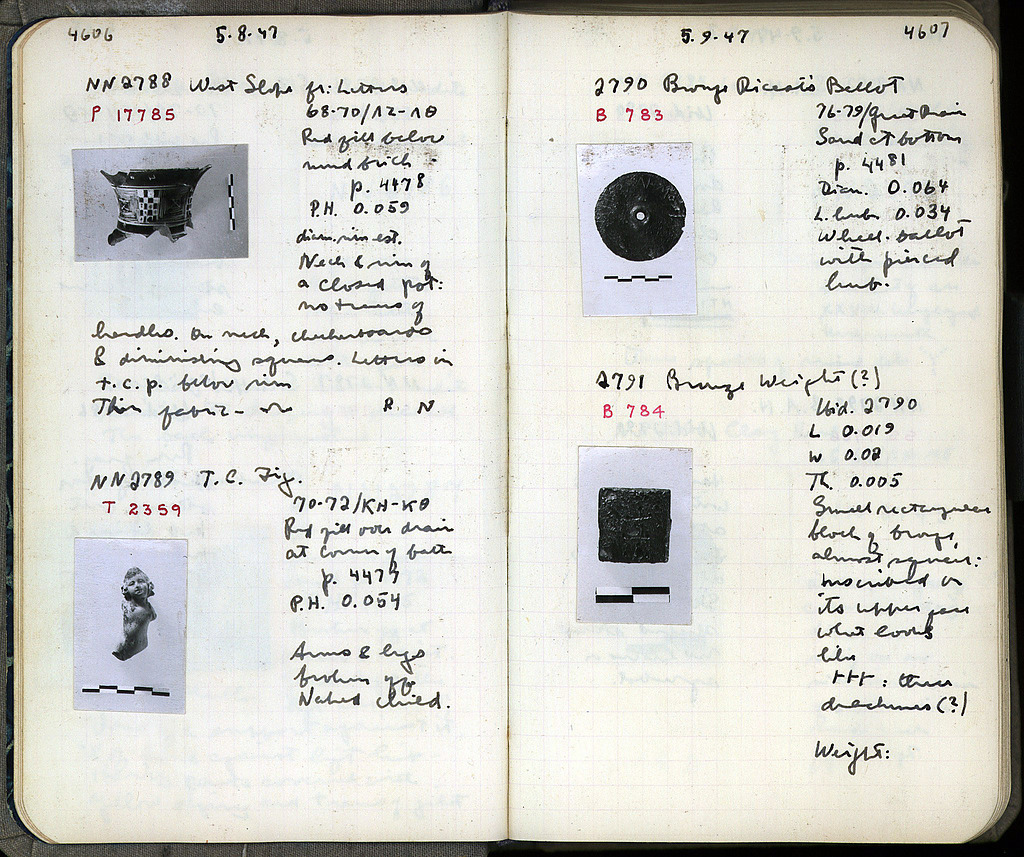 4606
5.8.47
NN2788 West Slope fr: Letters
P 17785
68-70/ΛΖ-ΛΘ
Red fill below
mud brick
p. 4478
P.H. 0.059
diam. rim est.
Neck & rim of
a closed pot:
no traces of
handles. On neck, checkerboards
& diminishing squares. Letters in
t.c.p. below rim
Thin fabric -
R. N.
NN2789 T.C. Fig.
T 2359
70-72/ΚΗ-ΚΘ
Red fill over drain
at corner of bath
p. 4479
P.H. 0.054
Arms & legs
broken off.
Naked child.
5.9.47
4607
2790 Bronze Dicast's Ballot
B 783
76-79/Great Drain
Sand at bottom
p. 4481
Diam. 0.064
L. hub 0.034
Wheel-ballot
with pierced
hub.
2791 Bronze Weight(?)
B 784
Ibid. 2790
L 0.019
W 0.02
Th. 0.005
Small rectangular
block of bronze,
almost square:
inscribed on
its upper face
what looks
like
ΗΗΗ: three
drachmas(?)
Weight: